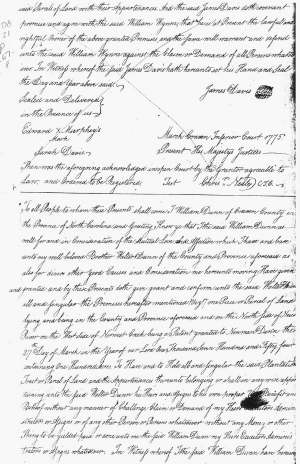 said Parcel of Land with their Appurtenances. And the said James Davis doth covenant
promise and agree with the said William Wynne, that he is at Present the lawful and
rightful Owner of the above granted Premises and the same will warrant and defend
unto the said William Wynne against the Claim or Demand of all Persons whatso
ever In Witness whereof the said James Davis hath hereunto set his Hand and Seal
the Day and Year above said
James Davis
Sealed and Delivered
in the presence of us
Edward X Murphey's
Mark
Sarah Davis
March Craven Inferior Court 1775
Present His Majestys Justices
Then was the aforegoing acknowledged in open Court by the Grantor agreeable to
Law, and Ordered to be Registered. Test Chris Neale CJC
To all People to whom these Presents shall come I William Dunn of Craven County in
the Province of North Carolina send Greeting Know ye that I the said William Dunn as
well for and in Consideration of the Natural Love and Affection which I have and bear
unto my well beloved Brother Walter Dunn of the County and Province aforesaid as
also for divers other good Causes and Consideration me hereunto moving Have given
and granted and by these Presents doth give grant and confirm unto the said Walter
all and singular the Premises hereafter mentioned One Piece or Parcel of Land
lying and being in the County and Province aforesaid and on the North side of Neuse
River on the West side of
27th Day of March in the Year of our Lord One Thousand Seven Hundred and Fifty four
containing One hundred Acres To Have and to Hold all and singular the said Plantation
Tract or Parcel of Land and the Appurtenances thereunto belonging or in any wise apper
taining unto the said Walter Dunn his Heirs and Assigns to his own proper
Behoof without any manner of Challenge Claim or Demand of my Heirs
strators or Assigns or of any other Person or Persons whatsoever without any Money or other
Thing to be yielded paid or done unto me the said William Dunn my Heirs Executors Adminis
trators or Assigns whatsoever. In Witness whereof I the said William Dunn have hereunto